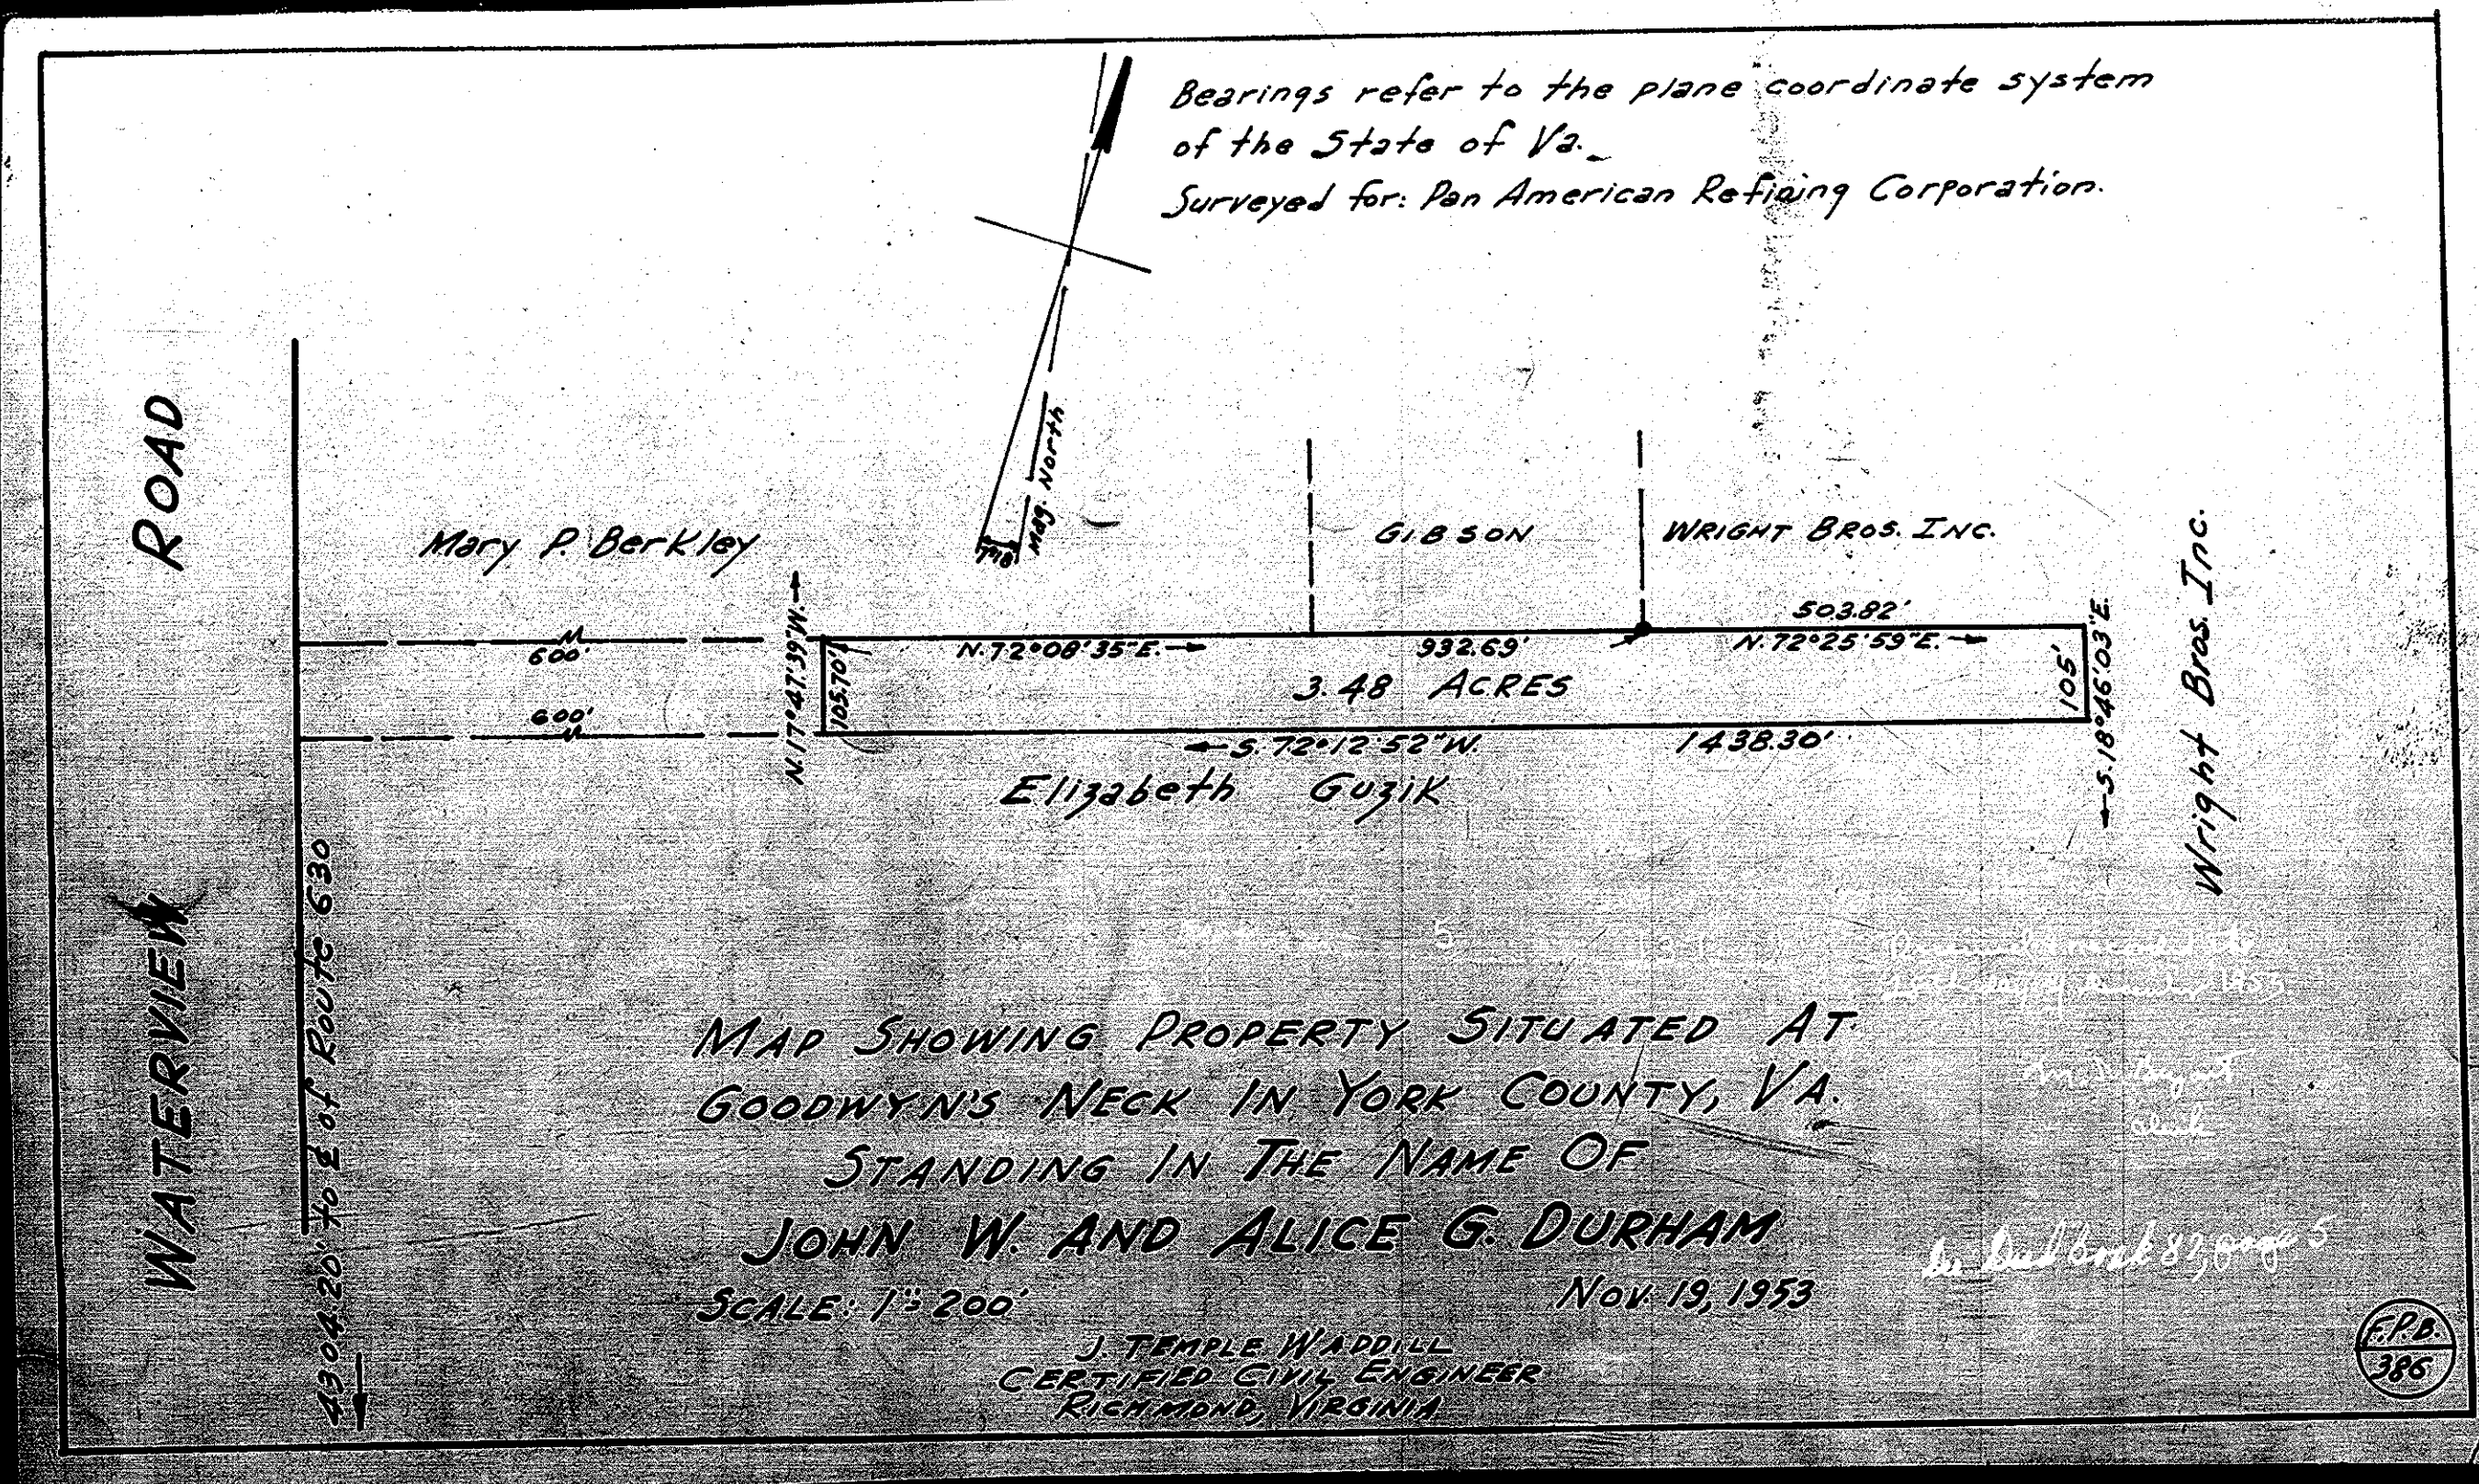 Bearings refer to the plane coordinate system
of the State of Va.
Surveyed for: Pan American Refining Corporation.
Mag. North
ROAD
WATERVIEW
Mary P. Berkley
GIBSON
WRIGHT BROS. INC.
Wright Bros. Inc.
600'
600'
N. 17°47'39"W.
105.70'
N. 72°08'35"E.
932.69'
503.82'
N. 72°25'59"E.
3.48 ACRES
105'
S. 18°46'03"E.
S. 72°12'52"W.
1438.30'
Elizabeth Guzik
4304.20' to ℄ of Route 630
MAP SHOWING PROPERTY SITUATED AT
GOODWYN'S NECK IN YORK COUNTY, VA.
STANDING IN THE NAME OF
JOHN W. AND ALICE G. DURHAM
SCALE: 1"=200'
NOV. 19, 1953
J. TEMPLE WADDILL
CERTIFIED CIVIL ENGINEER
RICHMOND, VIRGINIA
Clerk
See Deed book 87, page 5
F.P.B.
386